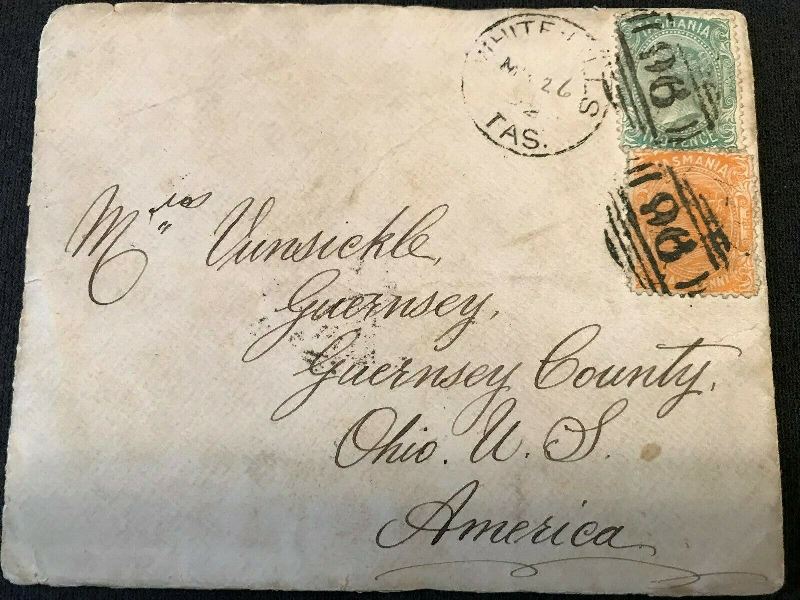 WHITE HILLS
26
TAS.
TASMANIA
96
PENCE
TASMANIA
96
Mrs Vunsickle,
Guernsey,
Guernsey County,
Ohio. U. S.
America